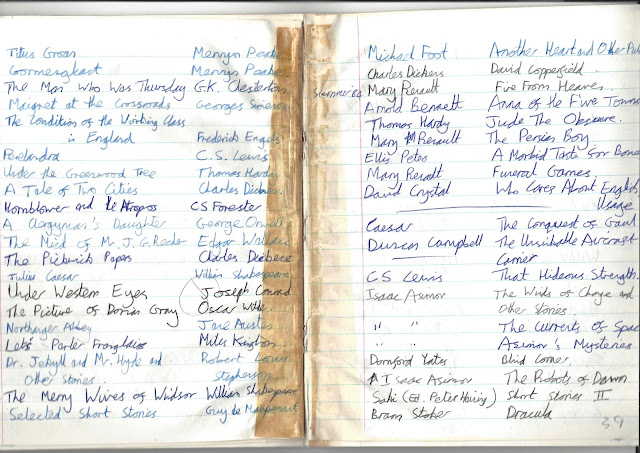 Titus Groan Mervyn Peake
Gormenghast Mervyn Peake
The Man Who Was Thursday G.K. Chesterton
Maigret at the Crossroads Georges Simenon
The Condition of the Working Class
in England Frederick Engels
Perelandra C.S. Lewis
Under the Greenwood Tree Thomas Hardy
A Tale of Two Cities Charles Dickens
Hornblower and the Atropos CS Forester
A Clergyman's Daughter George Orwell
The Mind of Mr. J.G. Reeder Edgar Wallace
The Pickwick Papers Charles Dickens
Julius Caesar William Shakespeare
Under Western Eyes Joseph Conrad
The Picture of Dorian Gray Oscar Wilde
Northanger Abbey Jane Austen
Let's Parler Franglais Miles Kington
Dr. Jekyll and Mr. Hyde and Robert Louis
Other Stories Stephenson
The Merry Wives of Windsor William Shakespeare
Selected Short Stories Guy de Maupassant
Michael Foot Another Heart and Other Pul
Charles Dickens David Copperfield
Summer 84 Mary Renault Fire From Heaven
Arnold Bennett Anna of the Five Towns
Thomas Hardy Jude The Obscure
Mary Renault The Persian Boy
Ellis Peters A Morbid Taste for Bones
Mary Renault Funeral Games
David Crystal Who Cares About English
Usage
Caesar The Conquest of Gaul
Duncan Campbell The Unsinkable Aircraft
Carrier
CS Lewis That Hideous Strength
Isaac Asimov The Winds of Change and
Other Stories
" " The Currents of Space
" " Asimov's Mysteries
Dornford Yates Blind Corner
Isaac Asimov The Robots of Dawn
Saki (Ed. Peter Haining) Short Stories II
Bram Stoker Dracula
39